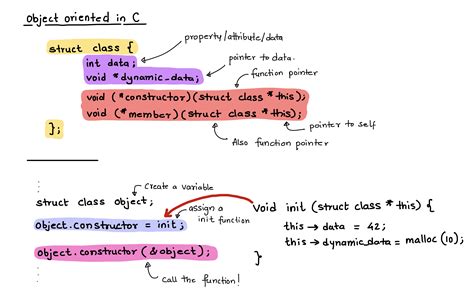 Object oriented in C
property/attribute/data
struct class {
int data;
pointer to data.
void *dynamic_data;
function pointer
void (*constructor)(struct class *this);
void (*member)(struct class *this);
};
pointer to self
Also function pointer
create a variable
struct class object;
assign a
init function
object.constructor = init;
object.constructor (&object);
call the function!
void init (struct class *this) {
this → data = 42;
this → dynamic_data = malloc (10);
}